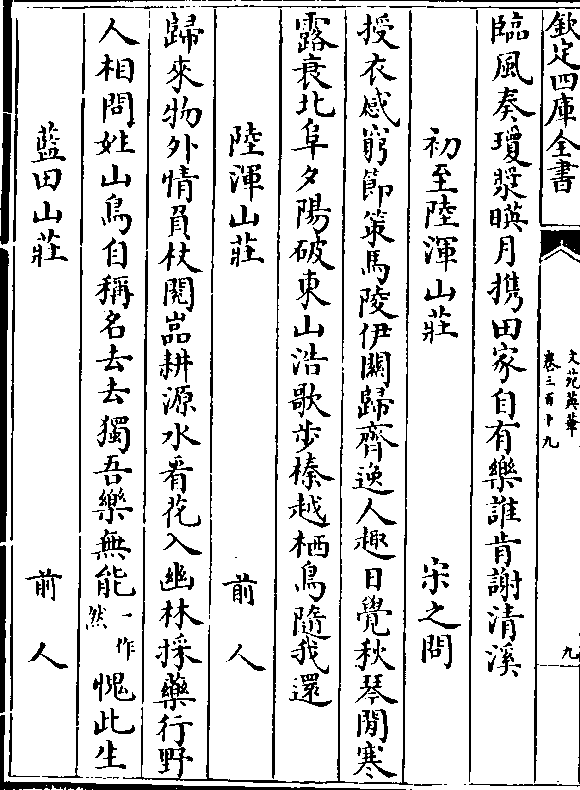 欽定四庫全書
文苑英華
卷三百十九
九
臨風奏瓊漿暎月携田家自有樂誰肯謝清溪
初至陸渾山莊
宋之問
授衣感窮節策馬陵伊闕歸齊逸人趣日覺秋琴閒寒
露衰北阜夕陽破東山浩歌步榛越栖鳥隨我還
陸渾山莊
前人
歸來物外情負杖閱嵓耕源水看花入幽林採藥行野
人相問姓山鳥自稱名去去獨吾樂無能一作然愧此生
藍田山莊
前人